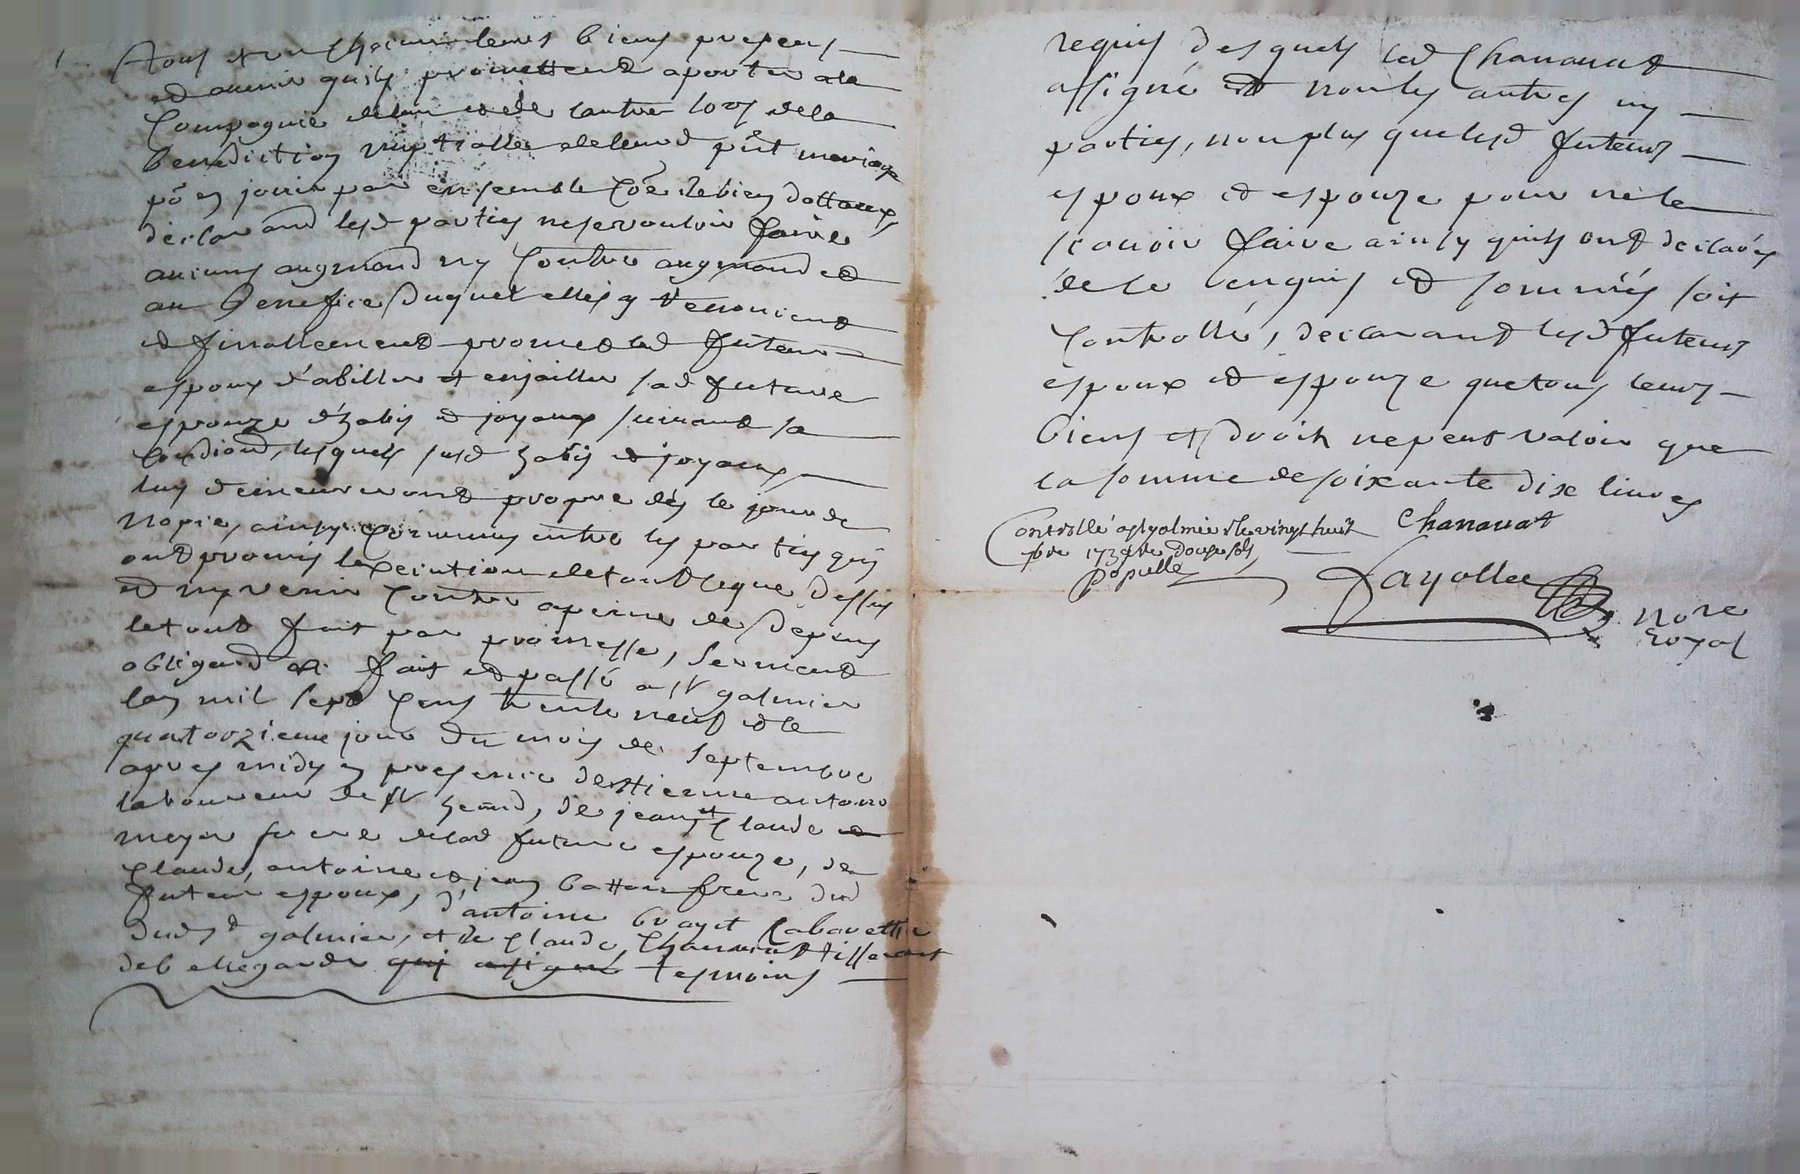 tous et un chacun leurs biens presens
et avenir quils promettent aporter a la
Compagnie de lun et de lautre lors de la
benediction nuptialle de leurd pnt mariage
po en jouir par ensemble coe de biens dottaux
declarand lesd parties ne se vouloir faire
aucuns augmand ny Contre augmand et
au Benefice Duquel elles y renoncent
et finallement promet led futeur
espoux d'abiller et enjoailler sad future
espouze d'habis et joyaux suivant sa
Condiond, lesquels susd habis et joyaux
luy demeureront propre dés le jour de
nopce, ainsy Convenus entre les parties quy
ont promis lexecution de tout ceque Dessus
et ny venir Contre a peine de Depens
le tout fait par promesse, Serment
obligand &. fait et passé a St galmier
lan mil sept Cens trente neuf et le
quatorzieme jour Du mois de Septembre
apres midy en presence destienne antoine
laboureur de St heand, de jean et Claude
moyer frere de lad future espouze, de
Claude, antoine et jean battan frere dud
futeur espoux, d'antoine brayet Cabarettier
Dud St galmier, et de Claude Chanavat tisserant
de bellegarde qui a signé tesmoins
requis desquels led Chanavat
a signé et non les autres ny
parties, non plus que lesd futeurs
espoux et espouze pour ne le
scavoir faire ainsy quils ont declarés
de ce Enquis et sommés soit
Controllé, declarant lesd futeurs
espoux et espouze que tous leurs
biens et droits ne peut valoir que
la somme de soixante dix livres
Controllé a St galmier le vingt huit Chanavat
7bre 1739 Re Douze sols
populle
fayolle
nore
royal